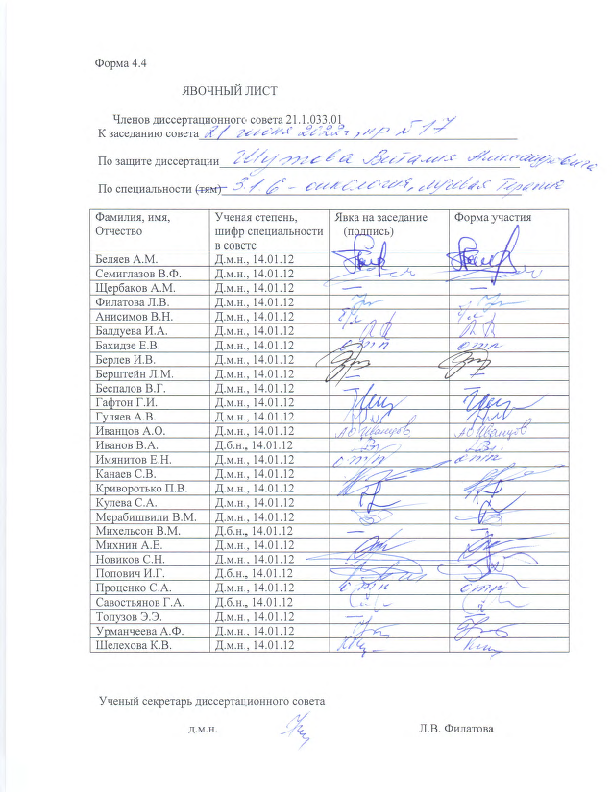 Форма 4.4
ЯВОЧНЫЙ ЛИСТ
Членов диссертационного совета 21.1.033.01
К заседанию совета 21 июня 2022 г, пр №17
По защите диссертации Шутова Виталия Александровича
По специальности (тям) 3.1.6 - онкология, лучевая терапия
Фамилия, имя, Отчество Ученая степень, шифр специальности в совете Явка на заседание (подпись) Форма участия
Беляев А.М. Д.м.н., 14.01.12
Семиглазов В.Ф. Д.м.н., 14.01.12
Щербаков А.М. Д.м.н., 14.01.12 — —
Филатова Л.В. Д.м.н., 14.01.12
Анисимов В.Н. Д.м.н., 14.01.12
Балдуева И.А. Д.м.н., 14.01.12
Бахидзе Е.В Д.м.н., 14.01.12 отп отп
Берлев И.В. Д.м.н., 14.01.12
Берштейн Л.М. Д.м.н., 14.01.12 —
Беспалов В.Г. Д.м.н., 14.01.12 — —
Гафтон Г.И. Д.м.н., 14.01.12
Гуляев А.В. Д.м.н., 14.01.12
Иванцов А.О. Д.м.н., 14.01.12 АО Иванцов АО Иванцов
Иванов В.А. Д.б.н., 14.01.12
Имянитов Е.Н. Д.м.н., 14.01.12 отп отп
Канаев С.В. Д.м.н., 14.01.12
Криворотько П.В. Д.м.н., 14.01.12
Кулева С.А. Д.м.н., 14.01.12
Мерабишвили В.М. Д.м.н., 14.01.12
Михельсон В.М. Д.б.н., 14.01.12 — —
Михнин А.Е. Д.м.н., 14.01.12
Новиков С.Н. Д.м.н., 14.01.12
Попович И.Г. Д.б.н., 14.01.12
Проценко С.А. Д.м.н., 14.01.12 отп отп
Савостьянов Г.А. Д.б.н., 14.01.12
Топузов Э.Э. Д.м.н., 14.01.12
Урманчеева А.Ф. Д.м.н., 14.01.12
Шелехова К.В. Д.м.н., 14.01.12
Ученый секретарь диссертационного совета
д.м.н. Л.В. Филатова